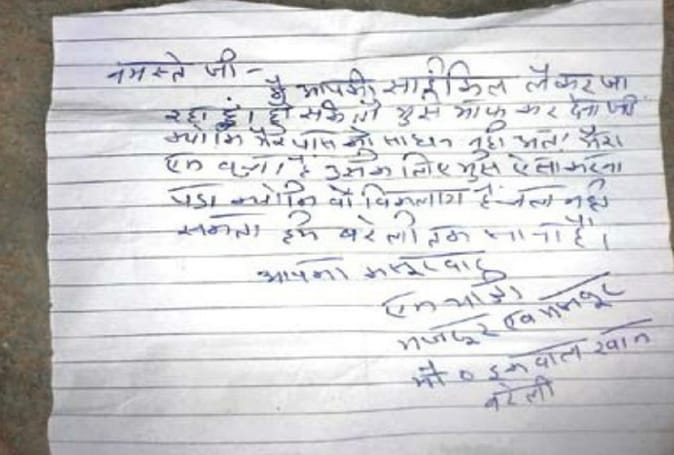 नमस्ते जी -
मै आपकी साईकिल लेकर जा
रहा हूं। हो सके तो मुझे माफ कर देना जी
क्योकि मेरे पास को साधन नही अतः मेरा
एक बच्चा है उसके लिए मुझे ऐसा करना
पडा क्योकि वो विकलांग है चल नही
सकता हमे बरेली तक जाना है।
आपका कसूरवार
एक यात्री
मजदूर एवं मजबूर
मौ० इकबाल खान
बरेली